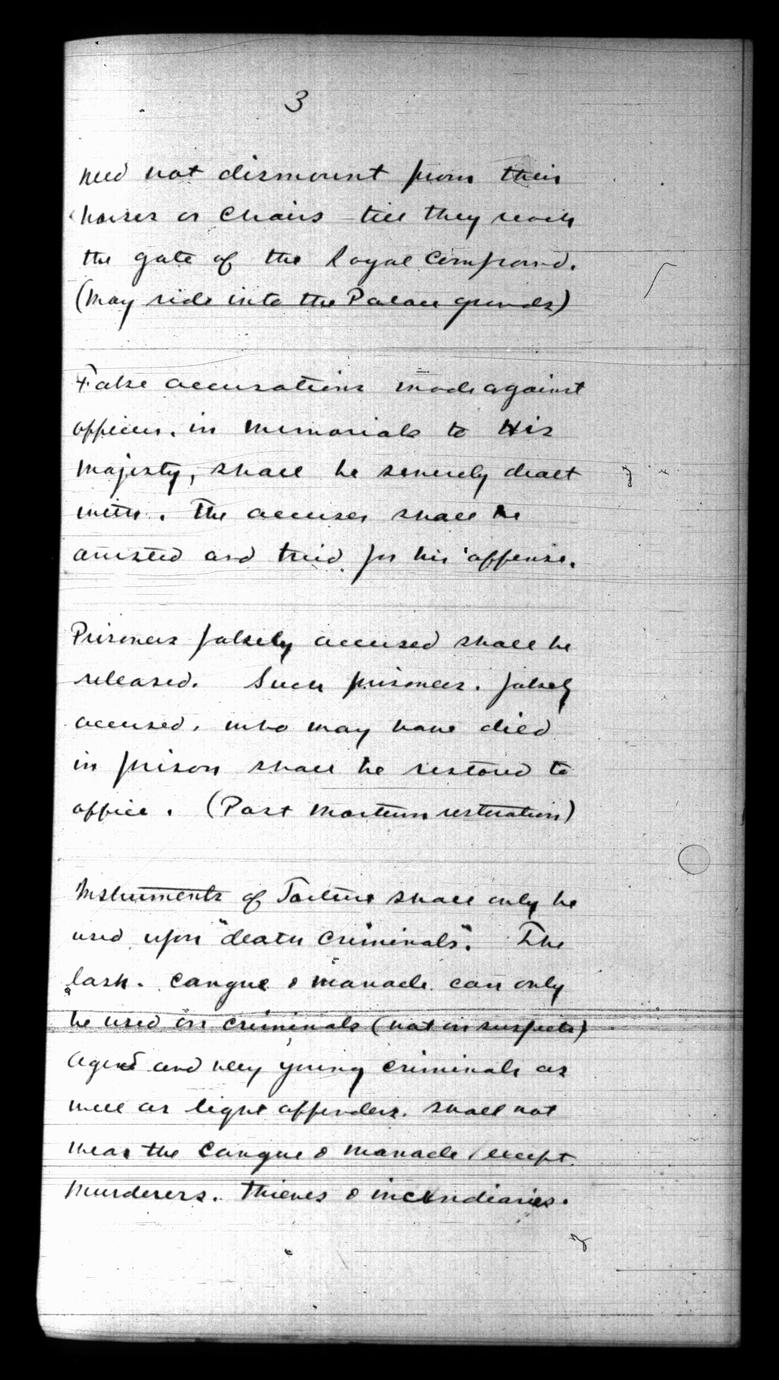 3
need not dismount from their
horses or chairs till they reach
the gate of the Royal Compound.
(May ride into the Palace grounds)
False accusations made against
officers, in memorials to His
Majesty, shall be severely dealt
with. The accuser shall be
arrested and tried for his offense.
Prisoners falsely accused shall be
released. Such prisoners, falsely
accused, who may have died
in prison shall be restored to
office. (Post Mortem restoration)
Instruments of Torture shall only be
used upon "death criminals". The
lash, cangue & manacle can only
be used on criminals (not on suspects)
Aged and very young criminals as
well as light offenders, shall not
wear the cangue & manacle, except
murderers, thieves & incendiaries.